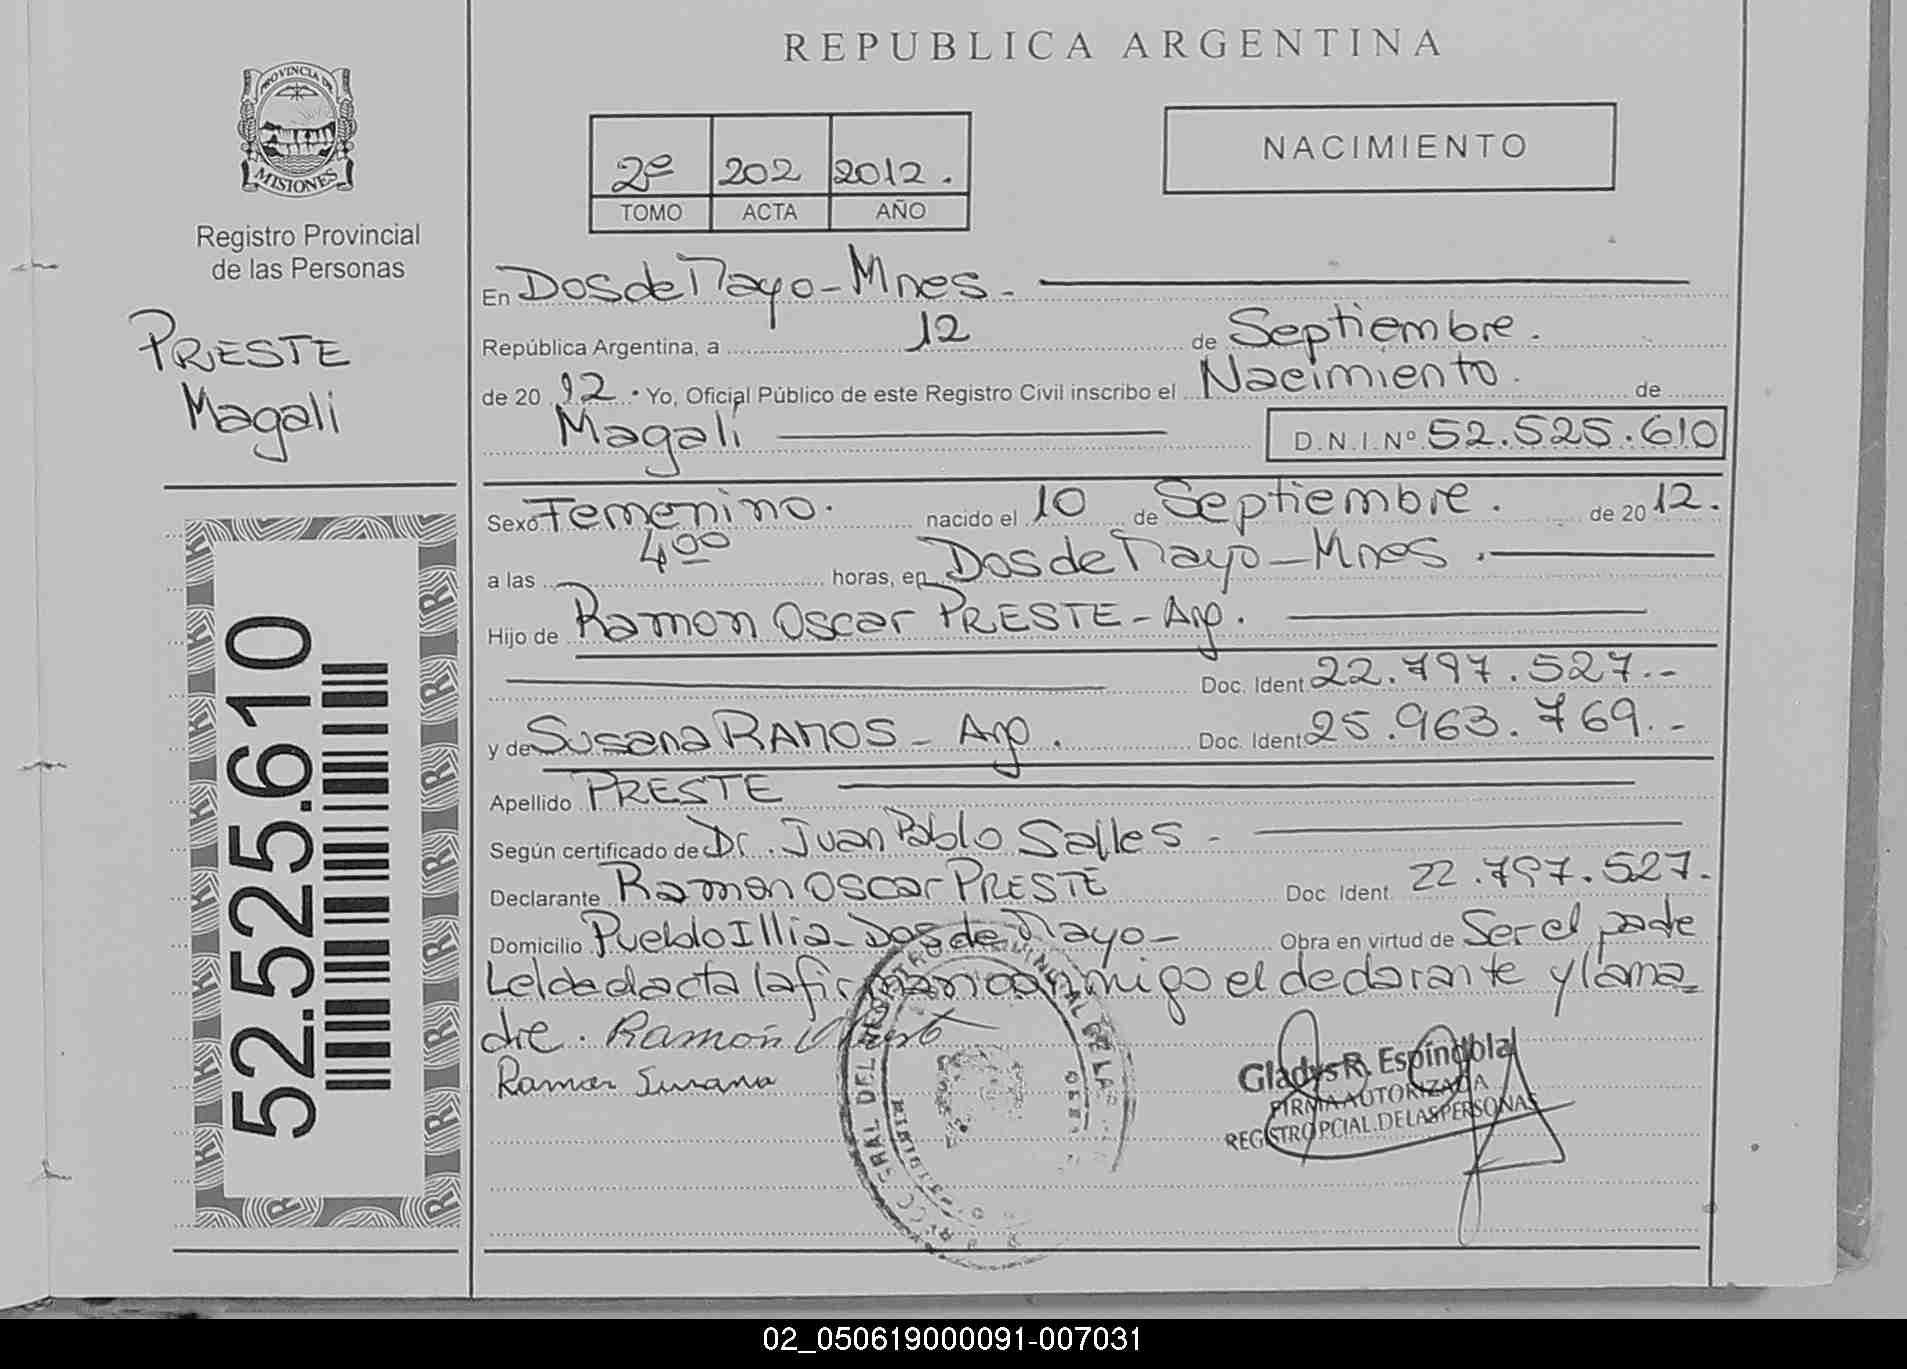 REPUBLICA ARGENTINA
PROVINCIA DE
MISIONES
Registro Provincial
de las Personas
PRESTE
Magali
52.525.610
2º 202 2012.
TOMO ACTA AÑO
NACIMIENTO
En Dos de Mayo - Mnes.
República Argentina, a 12 de Septiembre.
de 20 12. Yo, Oficial Público de este Registro Civil inscribo el Nacimiento. de
Magali D.N.I.Nº 52.525.610
Sexo Femenino. nacido el 10 de Septiembre. de 20 12.
a las 4⁰⁰ horas, en Dos de Mayo - Mnes.
Hijo de Ramon Oscar PRESTE - Arg.
Doc. Ident 22.797.527.-
y de Susana RAMOS - Arg. Doc. Ident 25.963.769.-
Apellido PRESTE
Según certificado de Dr. Juan Pablo Salles -
Declarante Ramon Oscar PRESTE Doc. Ident. 22.797.527.
Domicilio Pueblo Illia - Dos de Mayo - Obra en virtud de Ser el padre
Leída el acta la firman conmigo el declarante y la ma-
dre. Ramón
Ramos Susana
Gladys R. Espíndola
FIRMA AUTORIZADA
REGISTRO PCIAL. DE LAS PERSONAS
02_050619000091-007031